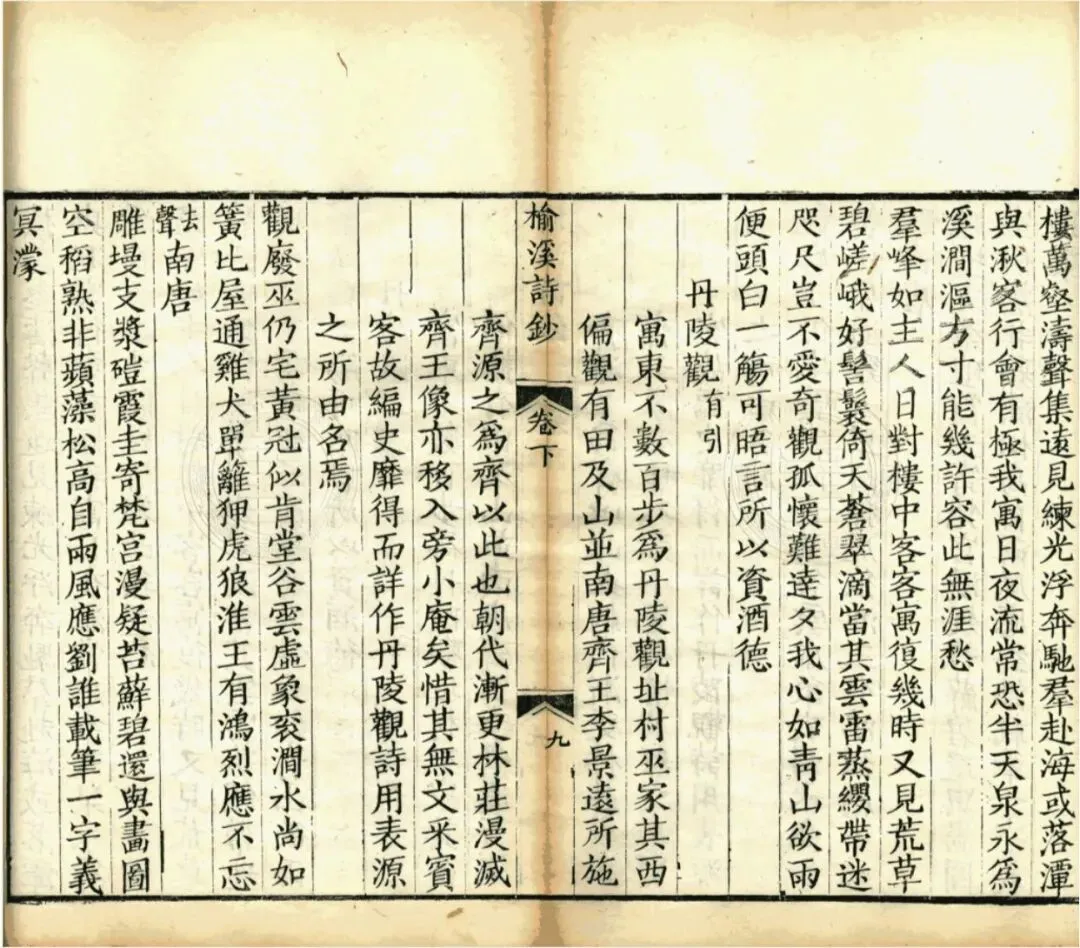 樓萬壑濤聲集遠見練光浮奔馳羣赴海或落潭
與湫客行會有極我寓日夜流常恐半天泉永為
溪澗漚方寸能幾許容此無涯愁
羣峰如主人日對樓中客客寓復幾時又見荒草
碧嵯峨好髻鬟倚天蒼翠滴當其雲雷蒸纓帶迷
咫尺豈不愛奇觀孤懷難達夕我心如青山欲雨
便頭白一觴可晤言所以資酒德
丹陵觀有引
寓東不數百步為丹陵觀址村巫家其西
偏觀有田及山並南唐齊王李景遠所施
榆溪詩鈔 卷下 九
齊源之為齊以此也朝代漸更林莊漫滅
齊王像亦移入旁小庵矣惜其無文釆賓
客故編史靡得而詳作丹陵觀詩用表源
之所由名焉
觀廢巫仍宅黃冠似肯堂谷雲虛象衮澗水尚如
簧比屋通雞犬單籬狎虎狼淮王有鴻烈應不忘
去聲南唐
雕墁支漿磑霞圭寄梵宫漫疑苔蘚碧還與畫圖
空稻熟非蘋藻松高自雨風應劉誰載筆一字義
冥濛